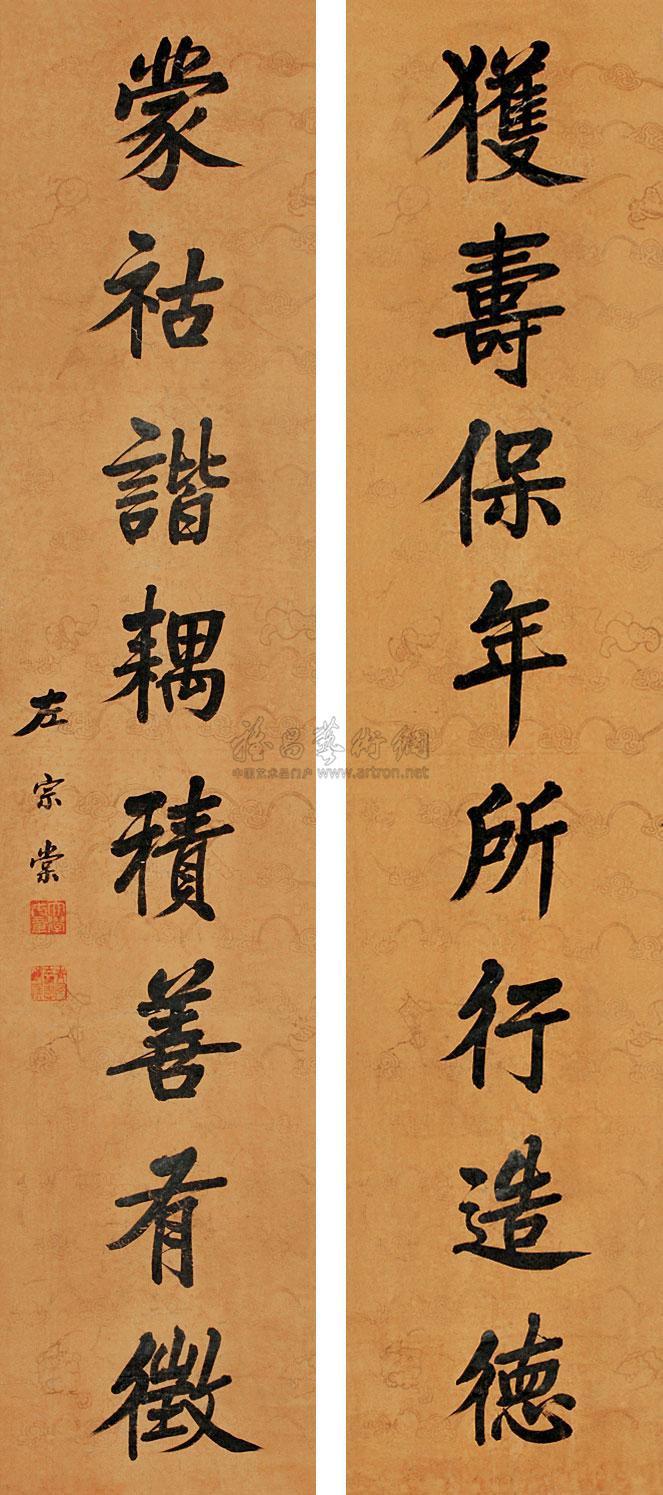 獲壽保年所行造德
蒙祜諧耦積善有徵
左宗棠
雅昌藝術網
中国艺术品门户 www.artron.net